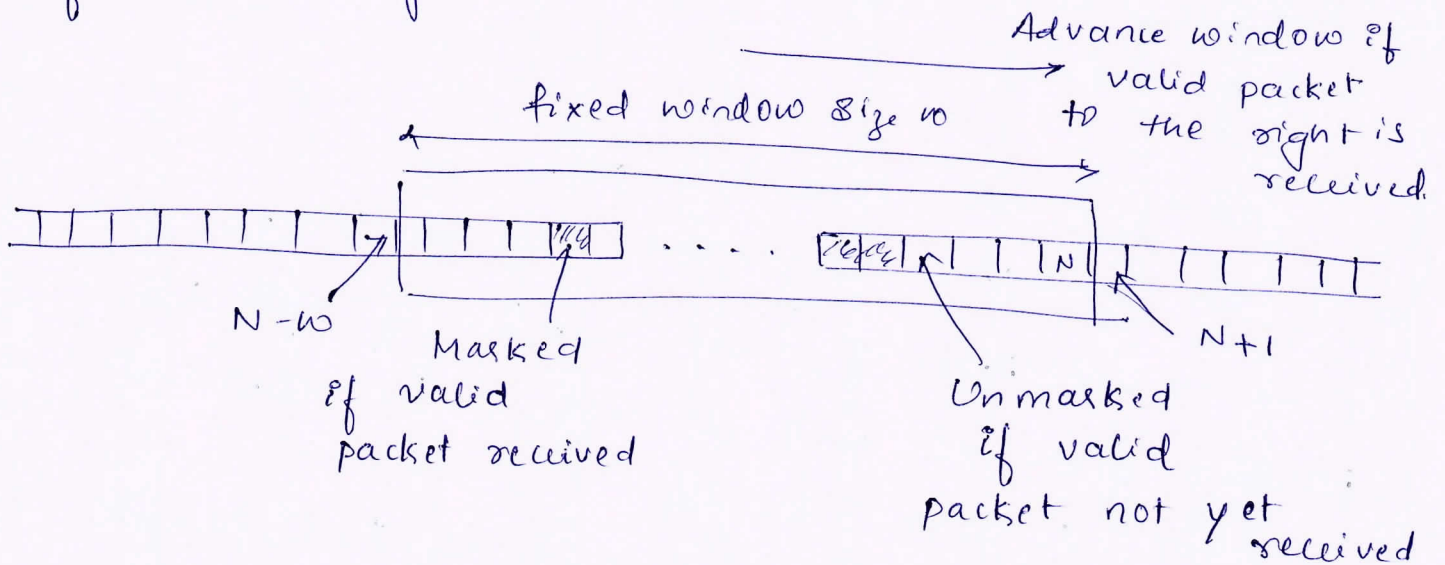 Advance window if
valid packet
to the right is
received.
fixed window size w
N
N-w
N+1
Marked
if valid
packet received
Unmarked
if valid
packet not yet
received